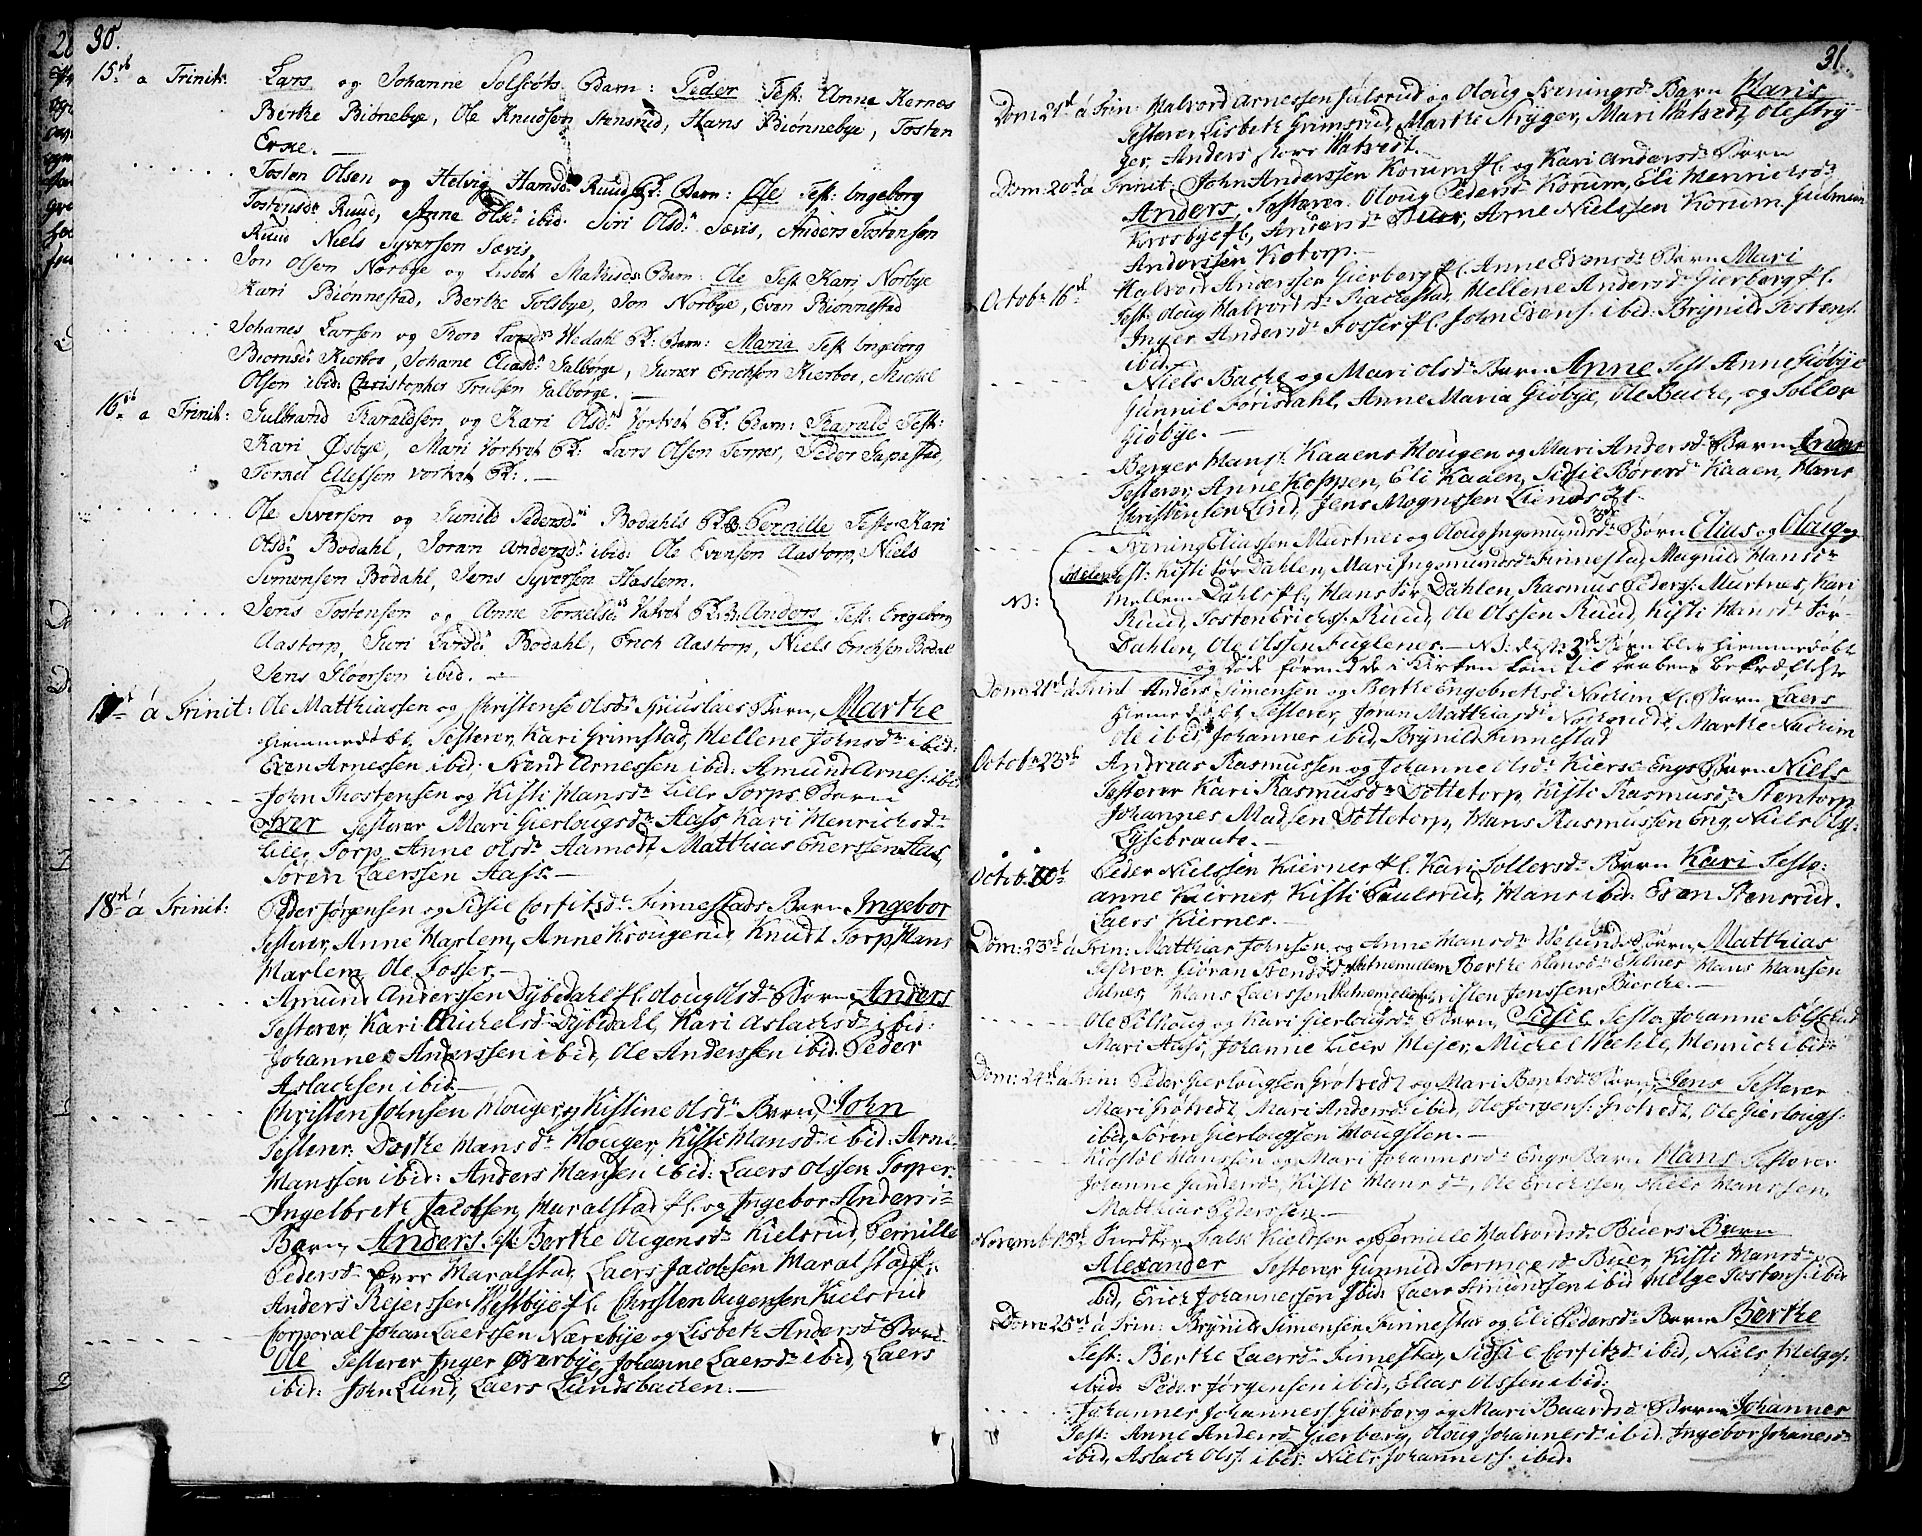 30.
15de a Trinit: Lars og Johanne Solscots Barn: Peder Test: Anne Kernes
Berthe Biönebye, Ole Knudson Stensrud, Hans Biönnebye, Tosten
Erne.
Tosten Olsen og Helvig Hansdr Ruud Barn: Ole Test: Ingeborg
Tostensdr Ruud, Anne Olsdr ibid. Siri Olsdr Sævis, Anders Tostensen
Ruud Niels Syversen Sævis,
Jon Olsen Norbye og Lisbet Mathisdr Barn: Ole Test Kari Norbye
Kari Biönnestad, Berthe Tolsbye, Jon Norbye, Even Biönnestad
Johanes Larsen og Thore Wedahl Barn: Maria Test Ingeborg
Biornsdr Kierboe, Johane Eliasdr Galborge, Gunner Erichsen Kierboe, Michel
Olsen ibid: Christopher Trulsen Galborge.
16de a Trinit: Gulbrand Haraldsen og Kari Olsdr Vortvet Barn: Harald Test:
Kari Øsbye, Mari Vortvet Lars Olsen Ternes, Peder Sapastad,
Terkel Ellefson Vortvet
Ole Siversen og Gunild Pedersdr Bodahls Pernille Test: Kari
Olsdr Bodahl, Joran Andersdr ibid: Ole Evensen Aastorp, Niels
Simonsen Bodahl, Jens Syversen Haslem.
Jens Tostensen og Anne Torkelsdr Vatvet Anders Test: Engeborg
Aastorp, Guri Larsdr Bodahl, Erich Aastorp, Niels Erichsen Bodal
Jens Floorsen ibid.
17de á Trinit: Ole Matthiassen og Christense Olsdr Barn, Marthe
hiemmedöbt, Testerer, Kari Grimstad, Hellene Johnsdr ibid:
Even Arnessen ibid. Arnessen ibid: Amund Arnes: ibid
John Thostensen og Kisti Hansdr Lille Torps Barn
Iver Testerer Mari Gierlougsdr Aass Kari Henrichsdr
Lille Torp, Anne Olsdr Aamodt, Matthias Enerssen Aas,
Søren Laerssen Aass.
18de á Trinit: Peder Jørgensen og Sidsie Corfitsdr Finnestads Barn Ingebor
Testerer, Anne Harlem, Anne Krougerud, Knudt Torp, Hans
Harlem, Ole Fosser,
Amund Anderssen Dybedahl fl. Oloug Olsdr Barn, Anders
Testerer, Kari Michelsdr Dybedahl, Kari Aslachsdr ibid:
Johannes Anderssen ibid, Ole Anderssen ibid: Peder
Aslachsen ibid.
Christen Johnsen Houger og Kistine Olsdr Barn, John
Testerer: Dorthe Hansdr Houger, Kisti Hansdr ibid: Arne
Hanssen ibid: Anders Hansen ibid: Laers Olssen Torper.
Ingelbret Jacobsen, Haralstad fl. og Ingebor Anders
Barn, Anders. Test: Berthe Augensdr Kielsrud, Pernille
Pedersdr Haralstad, Laers Jacobsen Haralstad fl.
Anders Rejerssen Westbye fl. Christen Augensen Kielsrud
Corporal Johan Laerssen Nærebye og Lisbeth Andersdr Barn
Ole Testerer Inger Øverbye, Johanne Laersdr ibid, Laers
ibid: John Lund, Laers Lundsbachen.
31.
Dom: 21de á Trin: Halvord Arnessen Julsrud og Oloug Sveningsdr Barn Maris
Testerer Lisbeth Grimsrud, Marthe Stryger, Mari Watvedt, Ole Stry-
ger, Anders store Watvedt.
Dom: 20de á Trinit: John Anderssen Korum fl. og Kari Andersdr Barn
Anders, Testerer. Oloug Pedersdr Korum, Eli Henrichsdr
Krosbye fl., Buer, Arne Nielssen Korum. Gulmun
Anderssen Kotorp.
Octobr 16de Halvord Anderssen Gierberg fl. Anne Evensdr Barn Mari
Test: Oloug Halvordsdr Rachestad, Hellene Andersdr Gierberg fl.
Inger Andersdr Fosser fl. John Evens. ibid: Brynild Tostens.
ibid.
Niels Bache og Mari Olsdr Barn Anne Test Anne Giøbye
Gunnil Førisdahl, Anne Maria Giøbye, Ole Bache, og Sollov
Giøbye.
Berger Hans: Kaaens Hougen og Mari Andersdr Barn Anders
Testerer, Anne Koppen, Eli Kaaen, Sidsil Børersdr Kaaen, Hans
Christensen Lind, Jens Mognssen Liende
Svening Eliassen Murtnes og Oloug Ingomundsdr Børn Elias og Oloug og
Helene Test: Kisti Sør Dahlen, Mari Ingomundsdr Finnestad, Magnild Hansdr
N3: Mellem Dahls fl, Hans Sør Dahlen, Rasmus Peders: Murtnes, Kari
Ruud, Tosten Erichs: Ruud, Ole Olssen Ruud, Kisti Hansdr Sør-
Dahlen, Ole Olssen Fuglenes. N3: disse 3de Børn blev hiemmedøbt
og døde førend de i Kirken kom til Daabens bekræftelse
Dom: 21de á Trin Anders Simensen og Berthe Engebretsdr Nachim fl. Barn Laers
hiemmedøbt, Testerer, Joran Matthiasdr Nocherud, Marthe Nachim
Ole ibid, Johannes ibid, Brynild Finnestad
Octobr 23de Andreas Rasmussen og Johanne Olsdr Kierse Engs Barn Niels
Testerer Kari Rasmusdr Dottetorp, Kisti Rasmusdr Stentorp,
Johannes Madsen Dottetorp, Hans Rasmussen Eng, Niels Ols:
Lysebraate.
Octob: 30te Peder Nielssen Kiernes fl. Kari Sollersdr Barn Kari Test:
anne Kiernes, Kisti Paulsrud, Hans ibid: Even Stensrud.
Laers Kiernes.
Dom: 23de á Trin: Matthias Johnsen og Anne Hansdr Barn, Matthias
Testerer Giøran Stensdr Berthe Hansdr Edlnes, Hans Hansen
Edlnes, Hans Laerssen Christen Jenssen Biercke.
Ole Silhoug og Kari Gierlougsdr Barn, Sidsil, Test: Johanne Sølscud
Mari Aass, Johanne Lilles Mejer, Michel Wehle, Henrich ibid:
Dom: 24de á Trin: Peder Gierlougsen Grøtvedt og Mari Bentsdr Barn, Jens Testerer
Mari Grøtvedt, Mari Andersdr ibid, Ole Jørgens: Grøtvedt, Ole Gierlougs:
ibid, Søren Gierlougssen Hougsten.
Kiostol Hanssen og Mari Johannesdr Engs Barn Hans Testerer
Johanne Gundersdr, Kisti Hansdr, Ole Erichssen, Niels Hanssen,
Matthias Pederssen.
Novemb: 13de Falk Kieldsen og Pernille Halvordsdr Buers Barn
Alexander Testerer Gunnild Tormoesdr Buer, Kisti Hansdr
ibid, Erich Johannessen ibid: Laers Simonssen ibid Helge Tostens: ibid
Dom: 25de á Trin: Brynild Simensen Finnestad og Eli Pedersdr Barn Berthe
Test: Berthe Laersdr Finnestad, Sidsil Corfitzdr ibid, Niels Helges:
ibid: Peder Jørgensen ibid, Elias Olssen ibid:
Johannes Johanness: Gierberg og Mari Baardsdr Barn Johannes
Test: Anne Andersdr Gierberg, Oloug Johannesdr ibid. Ingebor Johanesdr
ibid, Aslach Ols: ibid: Niels Johanness: ibid.